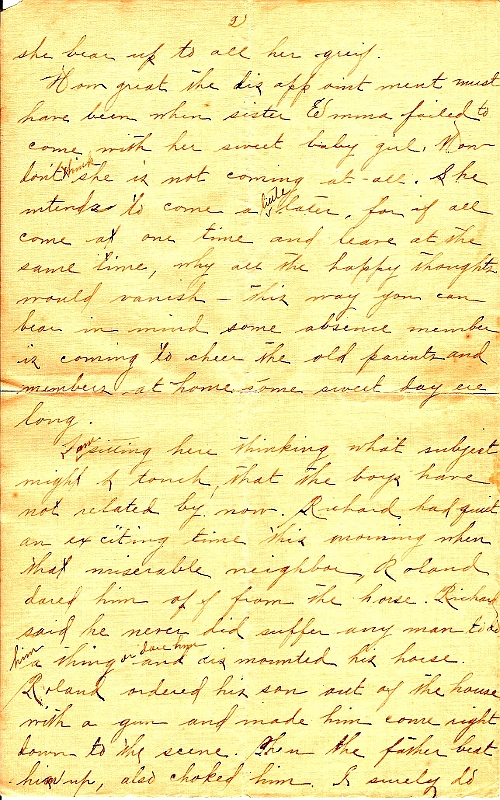 2
she bear up to all her greif.
How great the disappointment must
have been when sister Emma failed to
come with her sweet baby girl. Now
don't think she is not coming at-all. She
intends to come a little later, for if all
come at one time and leave at the
same time, why all the happy thoughts
would vanish - this way you can
bear in mind some absence member
is coming to cheer the old parents and
members at home some sweet day ere
long.
I am sitting here thinking what subject
might I touch, that the boys have
not related by now. Richard had quit
an exciting time this morning when
that miserable neighbor, Roland
dared him off from the horse. Richard
said he never did suffer any man to do
him a thing or dare him and dismounted his horse.
Roland ordered his son out of the house
with a gun and made him come right
down to the scene. Then the father beat
him up, also choked him. I surely do